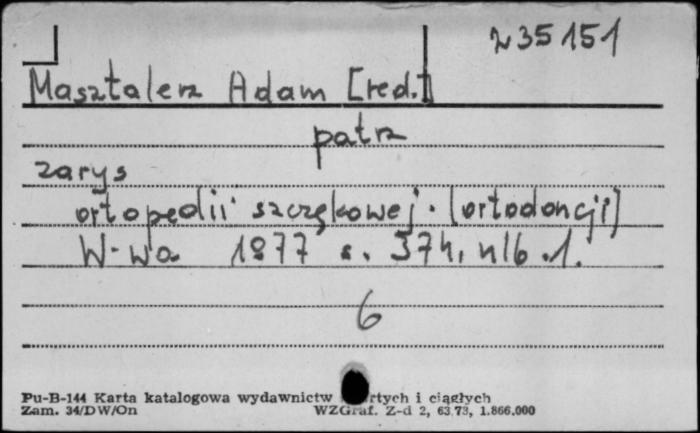 235151
Masztalerz Adam [red.]
patrz
zarys
ortopedii szczękowej. [ortodoncji]
W-wa 1977 s. 374, nlb .1.
6
Pu-B-144 Karta katalogowa wydawnictw i ciągłych
Zam. 34/DW/On WZGraf. Z-d 2, 63.73, 1.866.000